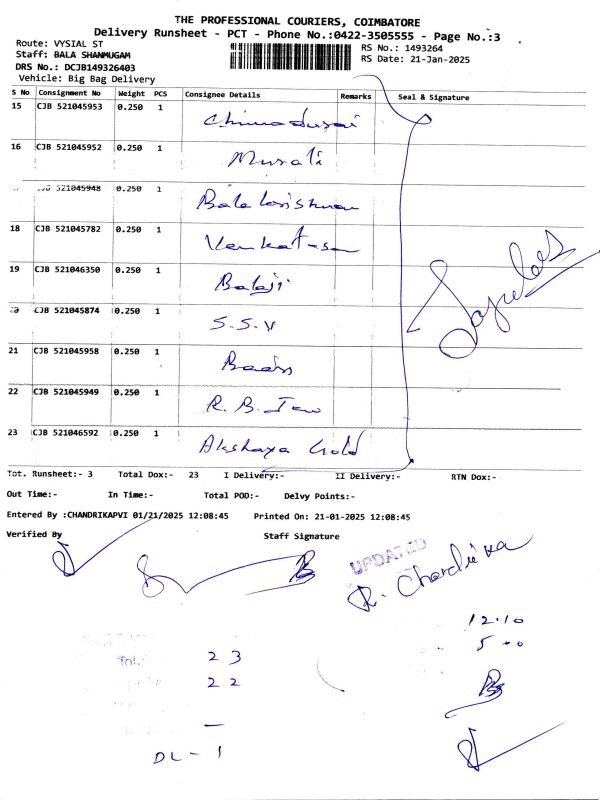 THE PROFESSIONAL COURIERS, COIMBATORE
Delivery Runsheet - PCT - Phone No.:0422-3505555 - Page No.:3
Route: VYSIAL ST
RS No.: 1493264
Staff: BALA SHANMUGAM
RS Date: 21-Jan-2025
DRS No.: DCJB149326403
Vehicle: Big Bag Delivery
S No Consignment No Weight PCS Consignee Details Remarks Seal & Signature
15 CJB 521045953 0.250 1 Chinnadurai
16 CJB 521045952 0.250 1 Murali
521045948 0.250 1 Balakrishnan
18 CJB 521045782 0.250 1
19 CJB 521046350 0.250 1 Balaji
20 CJB 521045874 0.250 1 S.S.V
21 CJB 521045958 0.250 1
22 CJB 521045949 0.250 1 R.B.
23 CJB 521046592 0.250 1 Akshaya Gold
Tot. Runsheet:- 3 Total Dox:- 23 I Delivery:- II Delivery:- RTN Dox:-
Out Time:- In Time:- Total POD:- Delvy Points:-
Entered By :CHANDRIKAPVI 01/21/2025 12:08:45 Printed On: 21-01-2025 12:08:45
Verified By Staff Signature
UPDATED
R. Chandrika
12.10
Total 23
22
—
DL - 1